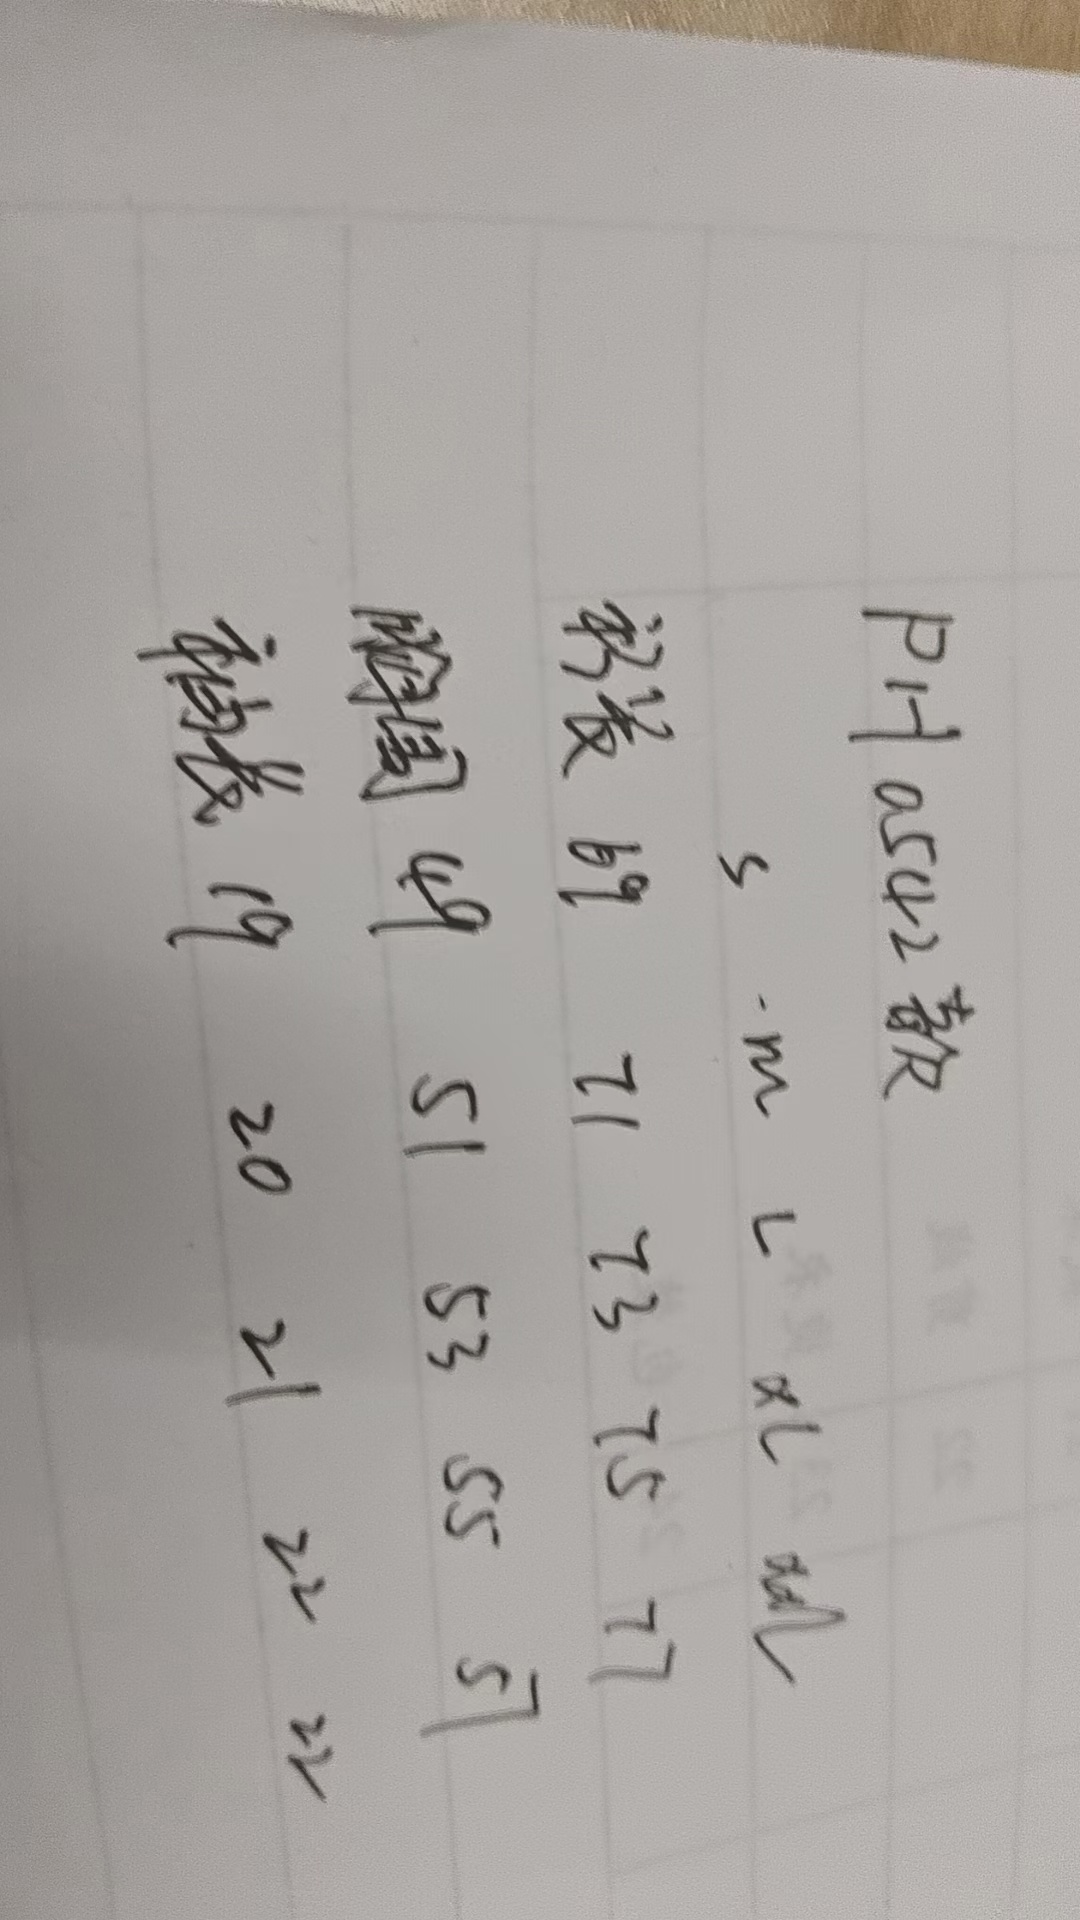 PHa542款
S m L xL xxL
衣长 69 71 73 75 77
胸围 49 51 53 55 57
袖长 19 20 21 22 22